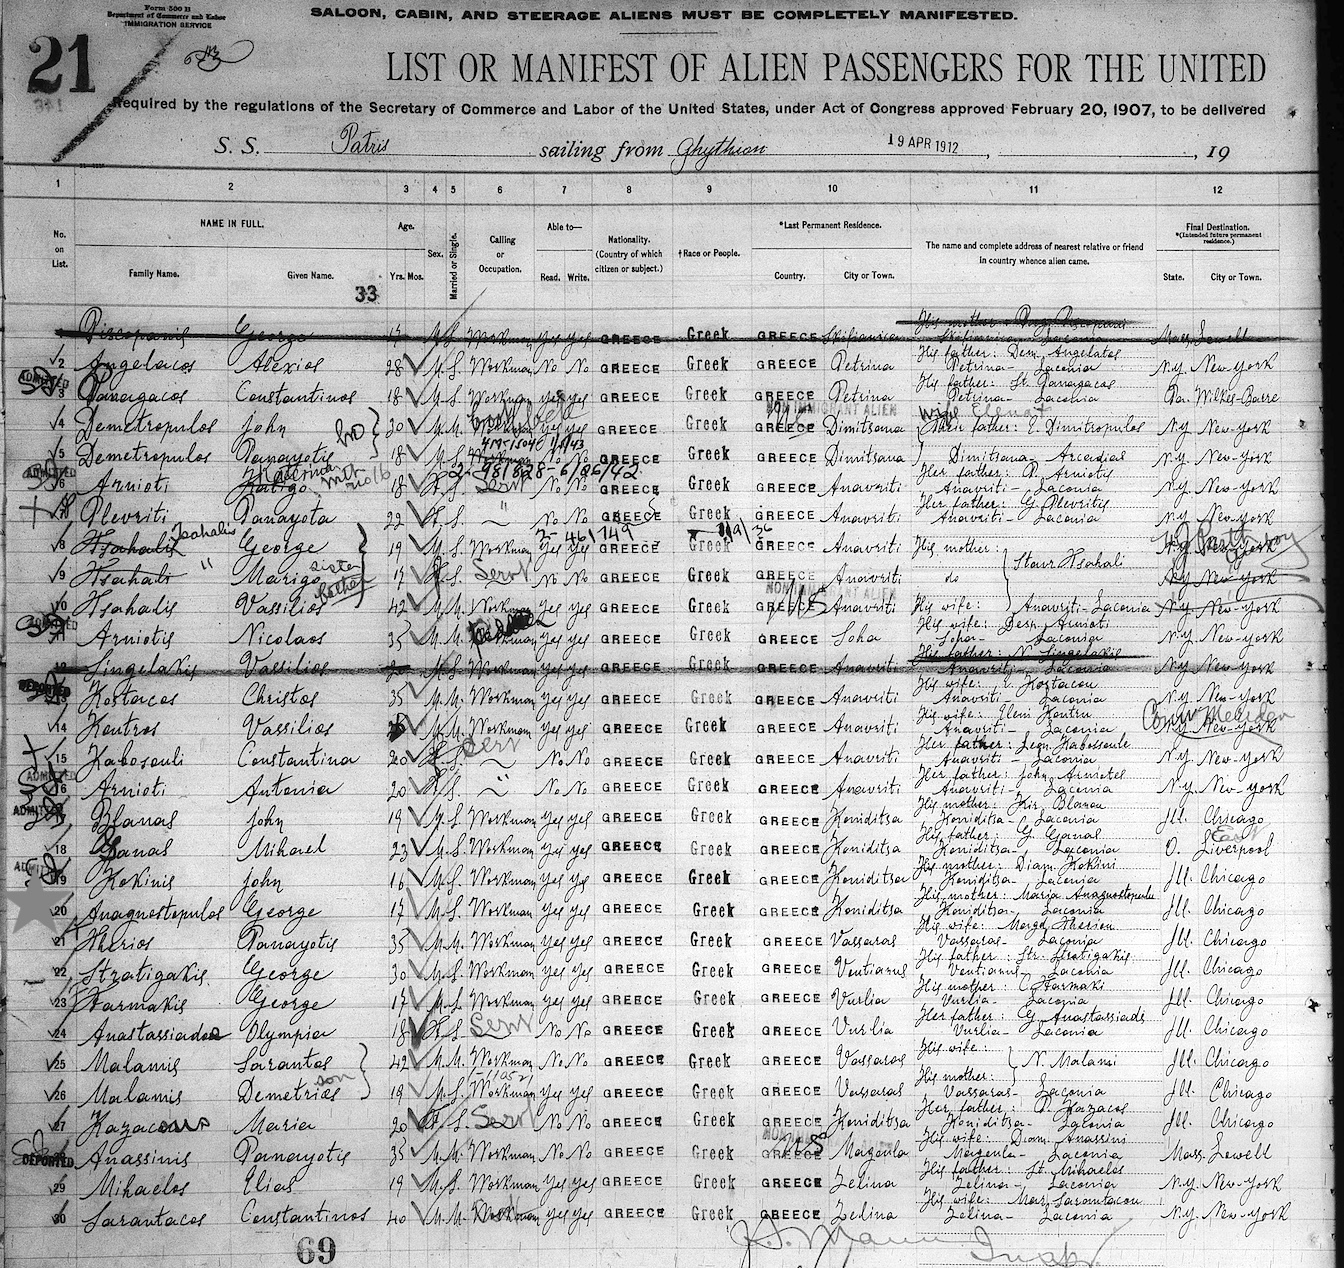 Form 500 B
Department of Commerce and Labor
IMMIGRATION SERVICE
SALOON, CABIN, AND STEERAGE ALIENS MUST BE COMPLETELY MANIFESTED.
21
LIST OR MANIFEST OF ALIEN PASSENGERS FOR THE UNITED
Required by the regulations of the Secretary of Commerce and Labor of the United States, under Act of Congress approved February 20, 1907, to be delivered
S. S. Patris sailing from Ghythion 19 APR 1912, , 19
1 2 3 4 5 6 7 8 9 10 11 12
No. on List. NAME IN FULL. Family Name. Given Name. Age. Yrs. Mos. Sex. Married or Single. Calling or Occupation. Able to— Read. Write. Nationality. (Country of which citizen or subject.) †Race or People. *Last Permanent Residence. Country. City or Town. The name and complete address of nearest relative or friend in country whence alien came. Final Destination. *(Intended future permanent residence.) State. City or Town.
33
Piscopanis George 17 M. S. Workman Yes Yes GREECE Greek GREECE Mass. Lowell
2 Angelacos Alexios 28 M. S. Workman No No GREECE Greek GREECE Petrina His father: Dem. Angelatos Petrina- Laconia N.y. New-york
ADMITTED 3 Panagacos Constantinos 18 M. S. Workman yes yes GREECE Greek GREECE Petrina His father: St. Panagacos Petrina- Laconia Pa. Wilkes-Barre
4 Demetropulos John 30 M. M. GREECE Greek NON IMMIGRANT ALIEN GREECE Dimitsana wife Their father: E. Dimitropulos N.y. New-york
5 Demetropulos Panayotis 18 M. S. Workman No No GREECE Greek GREECE Dimitsana Dimitsana- Arcadias N.y. New-york
ADMITTED 6 Arnioti 18 S. Servt No No GREECE Greek GREECE Anavriti Her father: P. Arniotis Anavriti- Laconia N.y. New-york
2-981828-6/26/42
7 Plevriti Panayota 22 S. " No No GREECE Greek GREECE Anavriti Her father: G. Plevritis Anavriti- Laconia N.y. New-york
8 Hsahalis Tsahalis George 19 M. S. Workman Yes Yes GREECE Greek GREECE Anavriti His mother: Stavr Hsahali N.y. New-york
9 Hsahali " Marigo sister 17 S. Servt No No GREECE Greek GREECE Anavriti do N.y. New-york
10 Hsahalis Vassilios 42 M. M. Workman yes yes GREECE Greek NON IMMIGRANT ALIEN GREECE Anavriti His wife: Anavriti-Laconia N.y. New-york
ADMITTED 11 Arniotis Nicolaos 35 M. M. yes yes GREECE Greek GREECE Soha His wife: Desp. Arnioti Soha- Laconia N.y. New-york
12 Lingelakis Vassilios M. S. Workman Yes Yes GREECE Greek GREECE Anavriti His father: N. Lingelakis Anavriti- Laconia N.y. New-york
DEPORTED 13 Kostacos Christos 35 M. M. Workman Yes Yes GREECE Greek GREECE Anavriti His wife: Kostacou Anavriti- Laconia N.y. New-york
14 Kontros Vassilios M. M. Workman Yes Yes GREECE Greek GREECE Anavriti His wife: Eleni Kontru Anavriti- Laconia Conn Meriden N.y. New-york
15 Kabosouli Constantina 20 S. Servt No No GREECE Greek GREECE Anavriti Her father: Kabossoule Anavriti - Laconia N.y. New-york
ADMITTED 16 Arnioti Antonia 20 S. " No No GREECE Greek GREECE Anavriti Her father: John Arniotes Anavriti- Laconia N.y. New-york
ADMITTED 17 Blanas John 19 M. S. Workman yes yes GREECE Greek GREECE Koniditsa His mother: Kir. Blanoa Koniditsa- Laconia Ill. Chicago
18 Ganas Mihael 23 M. S. Workman yes yes GREECE Greek GREECE Koniditsa His father: G. Ganas Koniditsa- Laconia O. East Liverpool
ADMITTED 19 Kokinis John 16 M. S. Workman Yes Yes GREECE Greek GREECE Koniditsa His mother: Diam. Kokini Koniditsa- Laconia Ill. Chicago
20 Anagnostopulos George 17 M. S. Workman Yes Yes GREECE Greek GREECE Koniditsa His mother: Maria Anagnostopule Koniditsa- Laconia Ill. Chicago
21 Therios Panayotis 35 M. M. Workman yes yes GREECE Greek GREECE Vassaras His wife: Margd. Theriou Vassaras- Laconia Ill. Chicago
22 Stratigakis George 30 M. S. Workman yes yes GREECE Greek GREECE Ventianus His father: Str. Stratigakis Ventianus- Laconia Ill. Chicago
23 Farmakis George 17 M. S. Workman yes yes GREECE Greek GREECE Vurlia His mother: C. Farmaki Vurlia- Laconia Ill. Chicago
24 Anastassiadea Olympia 18 S. Servt No No GREECE Greek GREECE Vurlia Her father: G. Anastassiads Vurlia- Laconia Ill. Chicago
25 Malamis Sarantos 42 M. M. Workman No No GREECE Greek GREECE Vassaras His wife: N. Malami Ill. Chicago
26 Malamis Demetrios son 19 M. S. Workman Yes Yes GREECE Greek GREECE Vassaras His mother: Vassaras- Laconia Ill. Chicago
27 Maria 20 S. Servt No No GREECE Greek GREECE Koniditsa Her father: P. Kazacos Koniditsa- Laconia Ill. Chicago
DEPORTED Anassinis Panayotis 35 M. M. Workman No No GREECE Greek GREECE Magoula His wife: Diam. Anassini Magoula- Laconia Mass. Lowell
29 Mihaelos Elias 19 M. S. Workman Yes Yes GREECE Greek GREECE Zelina His father: St. Mihaelos Zelina- Laconia N.y. New-york
30 Sarantacos Constantinos 40 M. M. Workman yes yes GREECE Greek GREECE Zelina His wife: Mar. Sarantacou Zelina- Laconia N.y. New-york
69